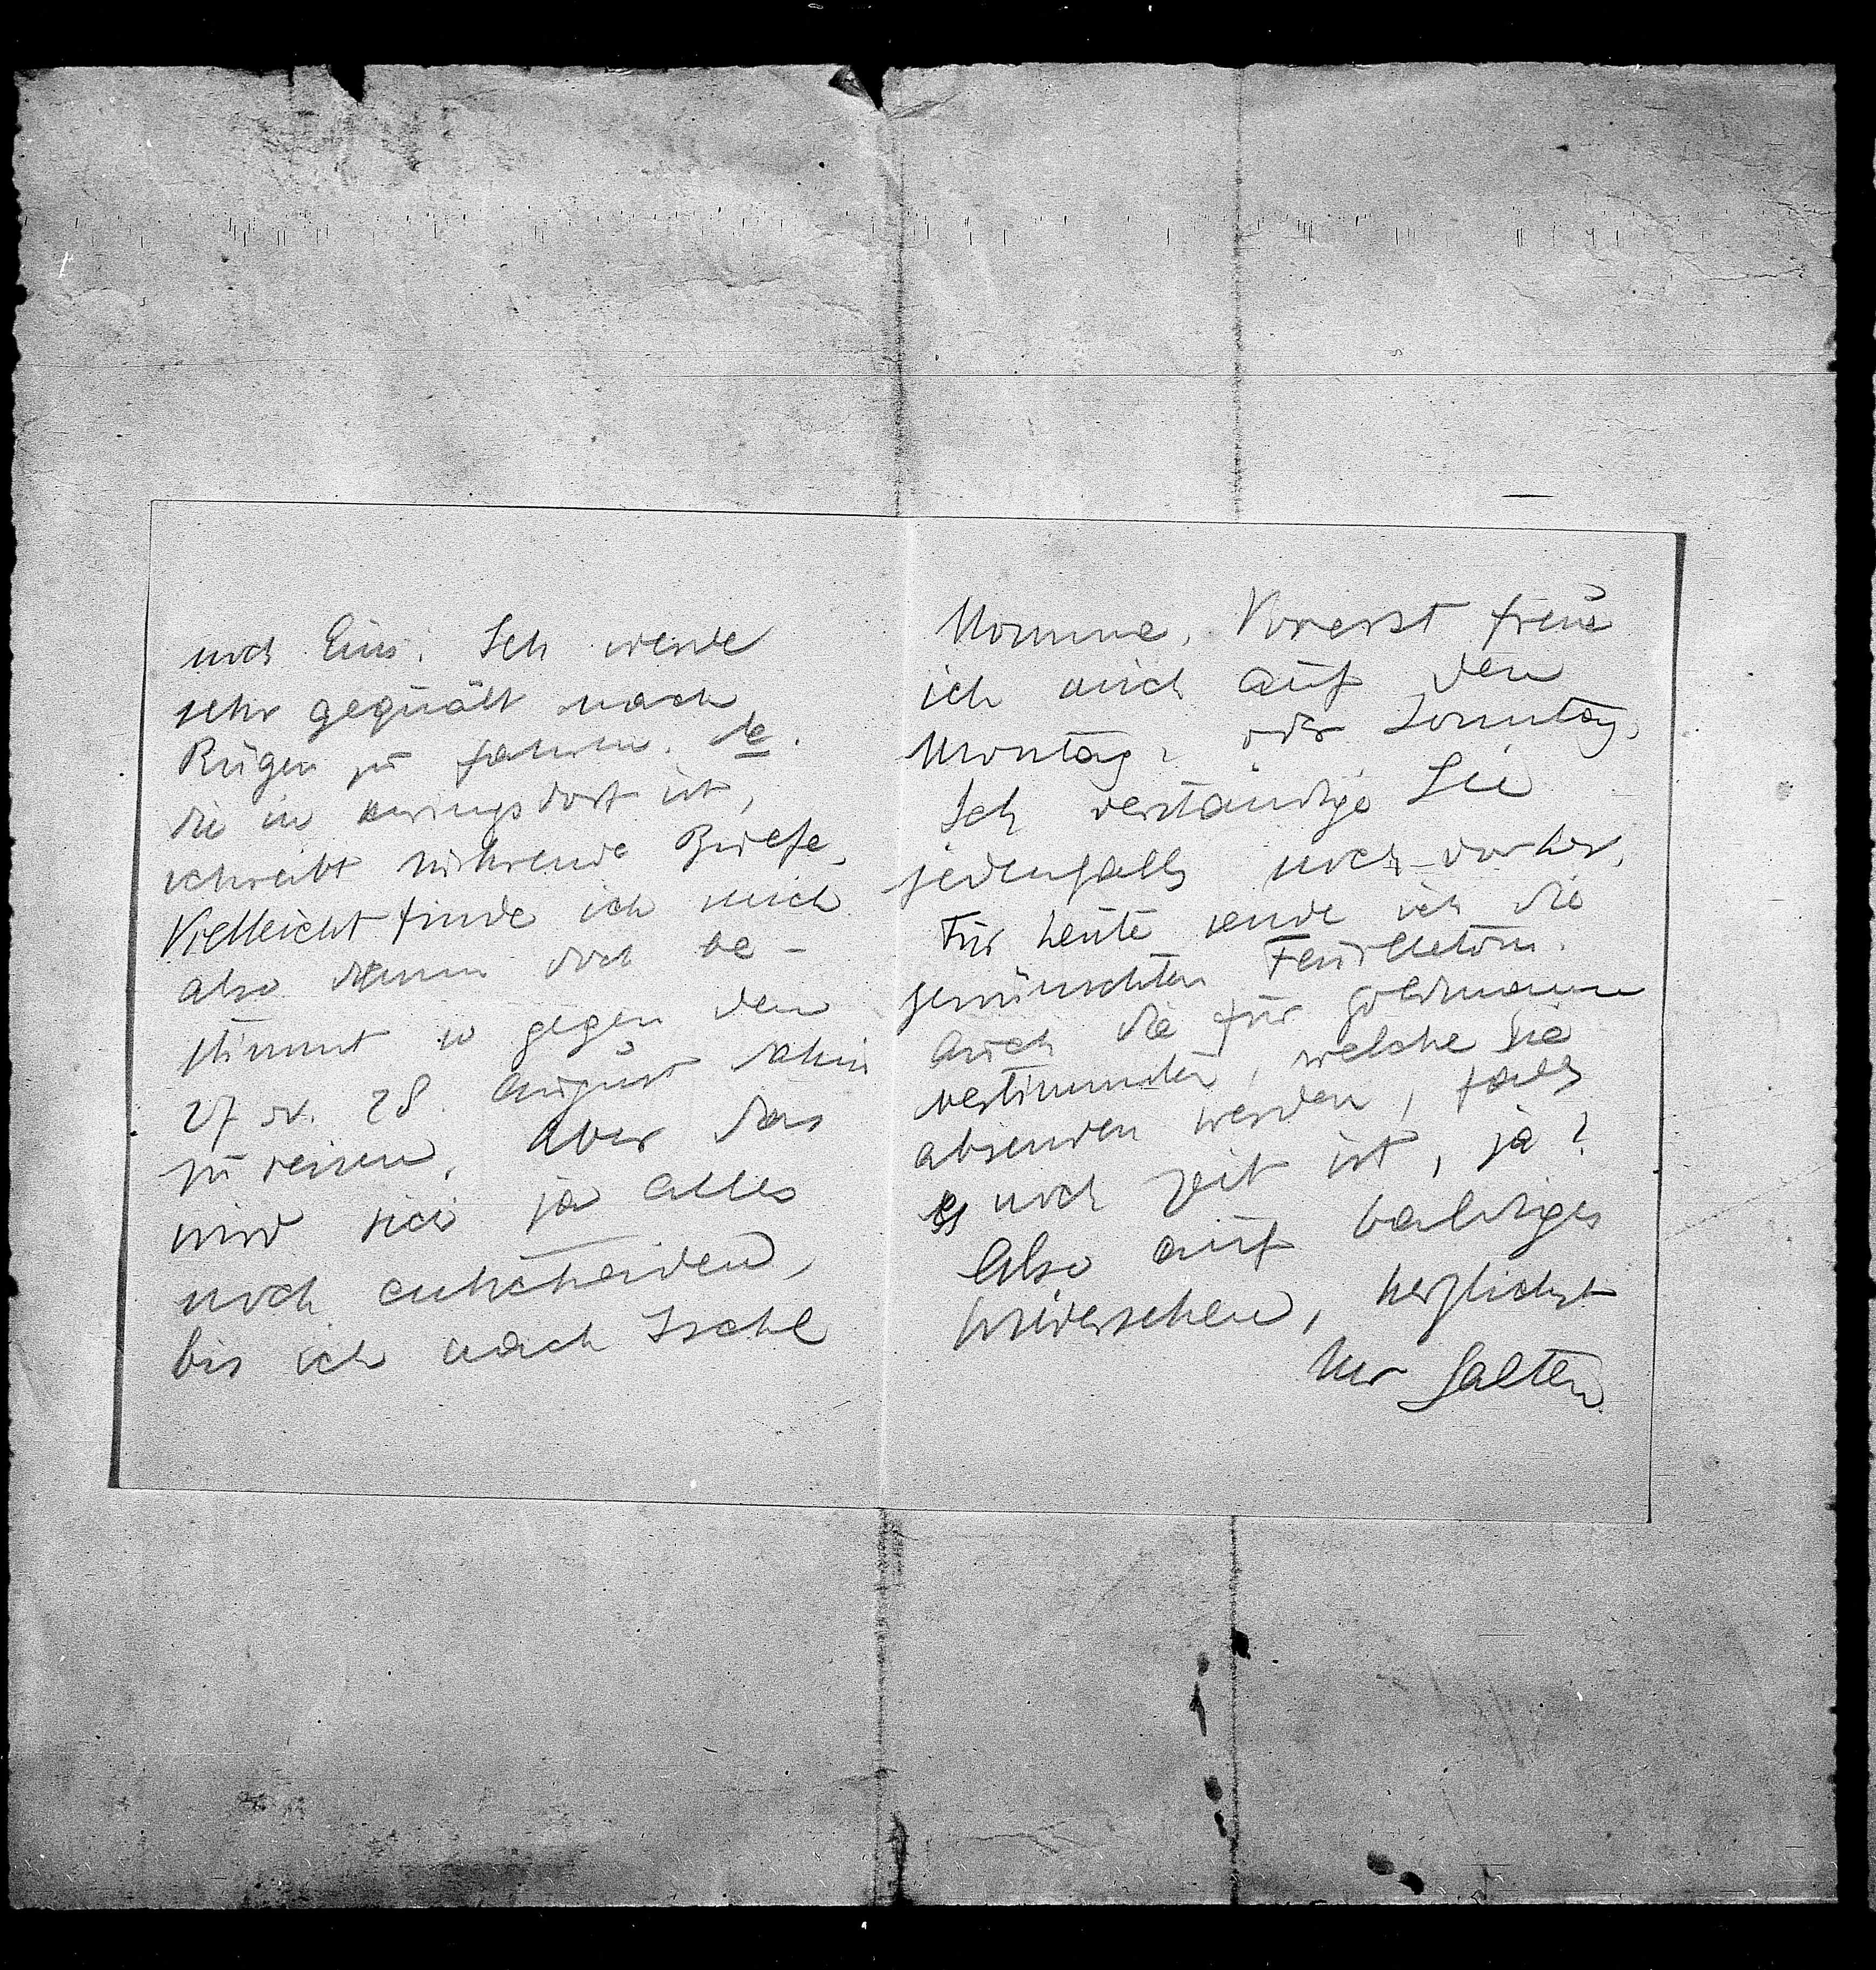 noch Eins. Ich werde
sehr gequält nach
Rügen zu fahren.
die in Heringsdorf ist,
schreibt rührende Briefe.
Vielleicht finde ich mich
also dann doch be-
stimmt so gegen den
27 od. 28. August dahin
zu reisen. Aber das
wird sich ja alles
noch entscheiden,
bis ich nach Ischl
komme. Vorerst freue
ich mich auf den
Montag, oder Sonntag.
Ich verständige Sie
jedenfalls noch vorher.
Für heute sende ich die
gewünschten Feuilletons.
Auch die für Goldmann
bestimmten, welche Sie
absenden werden, falls
es noch Zeit ist, ja?
Also auf baldiges
Wiedersehen, herzlichst
Ihr Salten